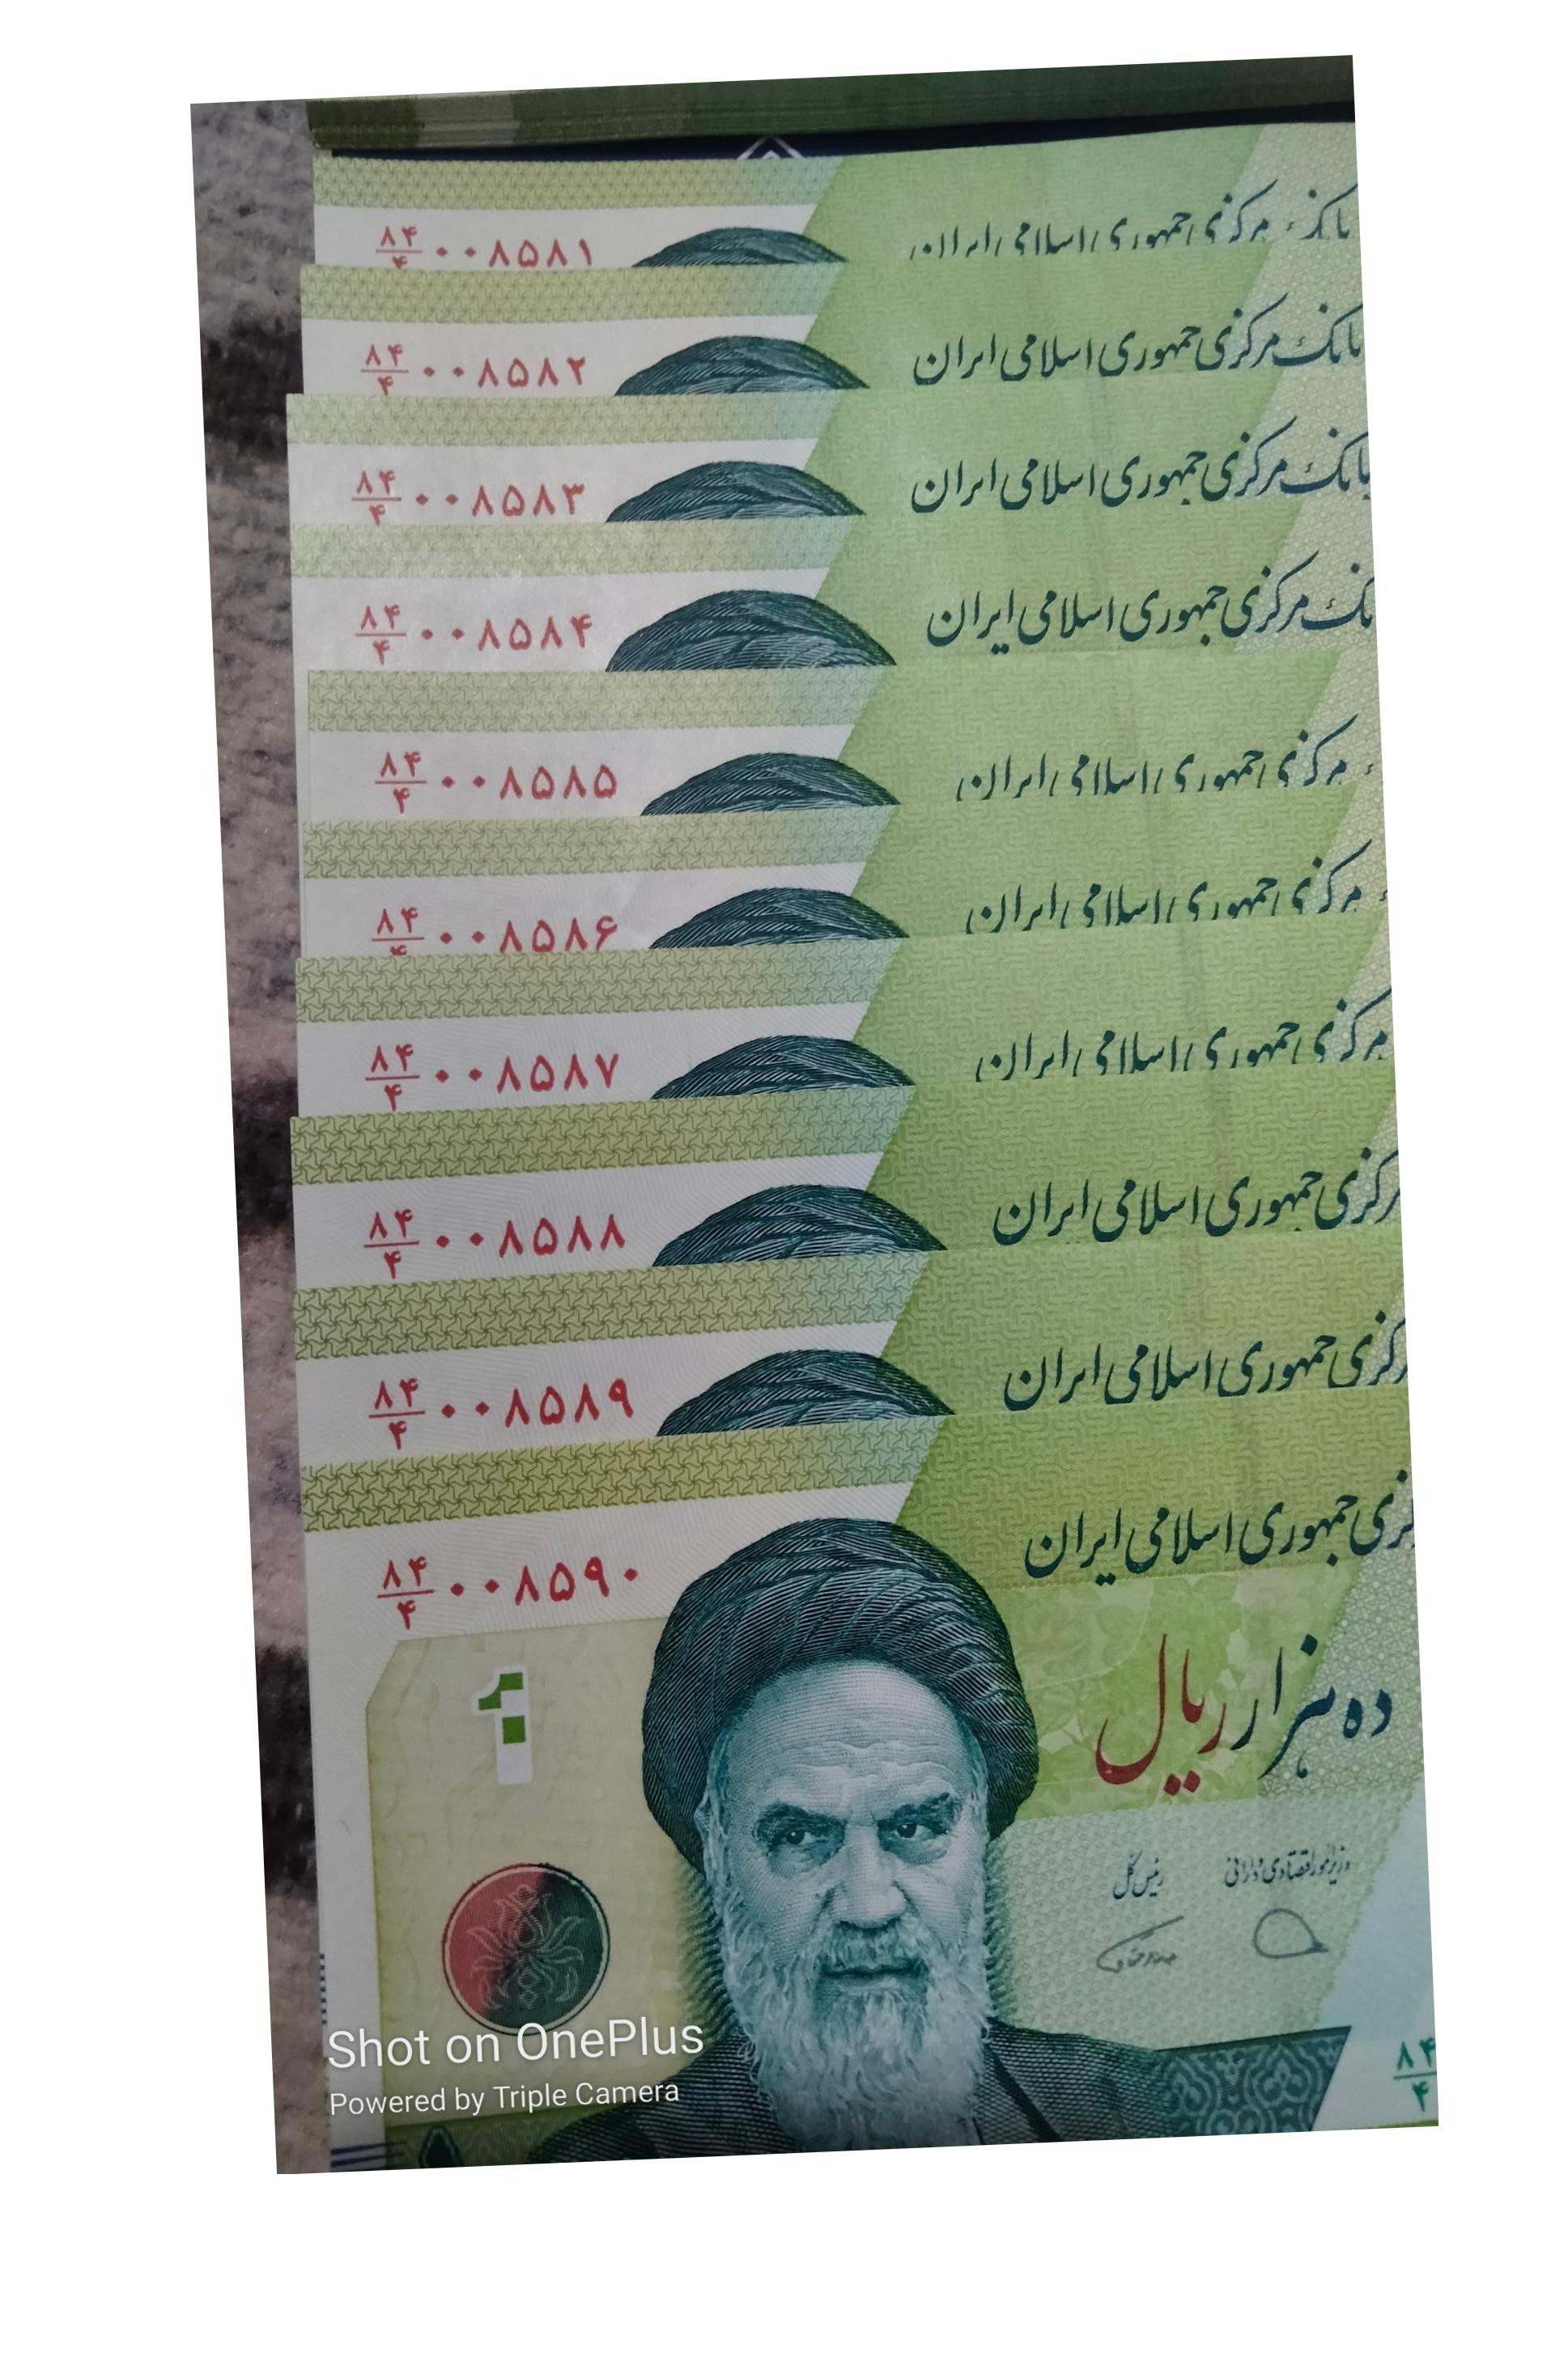 ۸۴/۴ ۰۰۸۵۸۱ بانک مرکزی جمهوری اسلامی ایران
۸۴/۴ ۰۰۸۵۸۲ بانک مرکزی جمهوری اسلامی ایران
۸۴/۴ ۰۰۸۵۸۳ بانک مرکزی جمهوری اسلامی ایران
۸۴/۴ ۰۰۸۵۸۴ نک مرکزی جمهوری اسلامی ایران
۸۴/۴ ۰۰۸۵۸۵ مرکزی جمهوری اسلامی ایران
۸۴/۴ ۰۰۸۵۸۶ مرکزی جمهوری اسلامی ایران
۸۴/۴ ۰۰۸۵۸۷ مرکزی جمهوری اسلامی ایران
۸۴/۴ ۰۰۸۵۸۸ رکزی جمهوری اسلامی ایران
۸۴/۴ ۰۰۸۵۸۹ رکزی جمهوری اسلامی ایران
۸۴/۴ ۰۰۸۵۹۰ کزی جمهوری اسلامی ایران
۱
ده هزار ریال
وزیر امور اقتصادی و دارائی
رئیس کل
Shot on OnePlus
Powered by Triple Camera
۸۴/۴